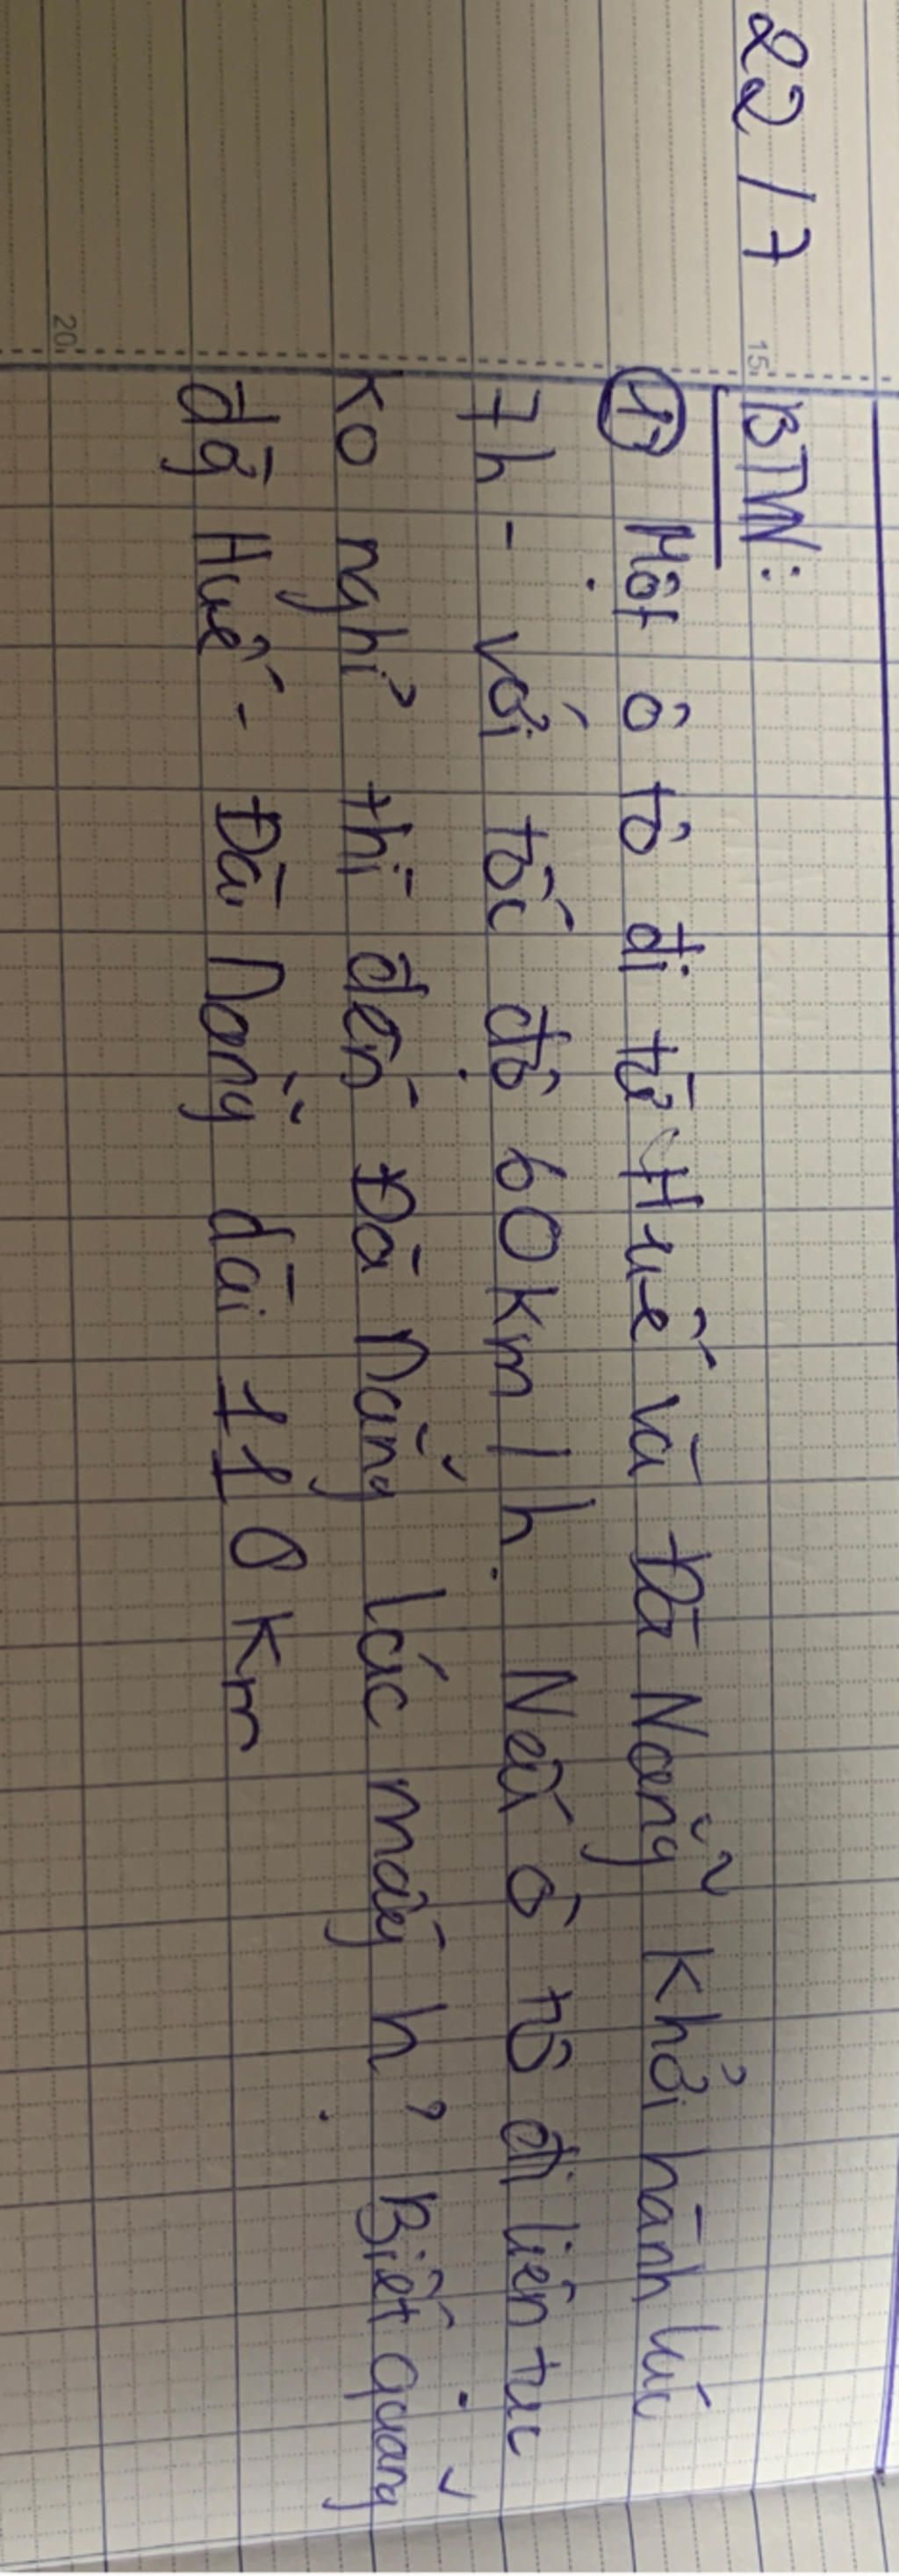 22/7
15
BTVN:
① Một ô tô đi từ Huế và Đà Nẵng khởi hành lúc
7h - với tốc độ 60km/h. Nếu ô tô đi liên tục
ko nghỉ thì đến Đà Nẵng lúc mấy h? Biết quãng
độ Huế - Đà Nẵng dài 110 km
20